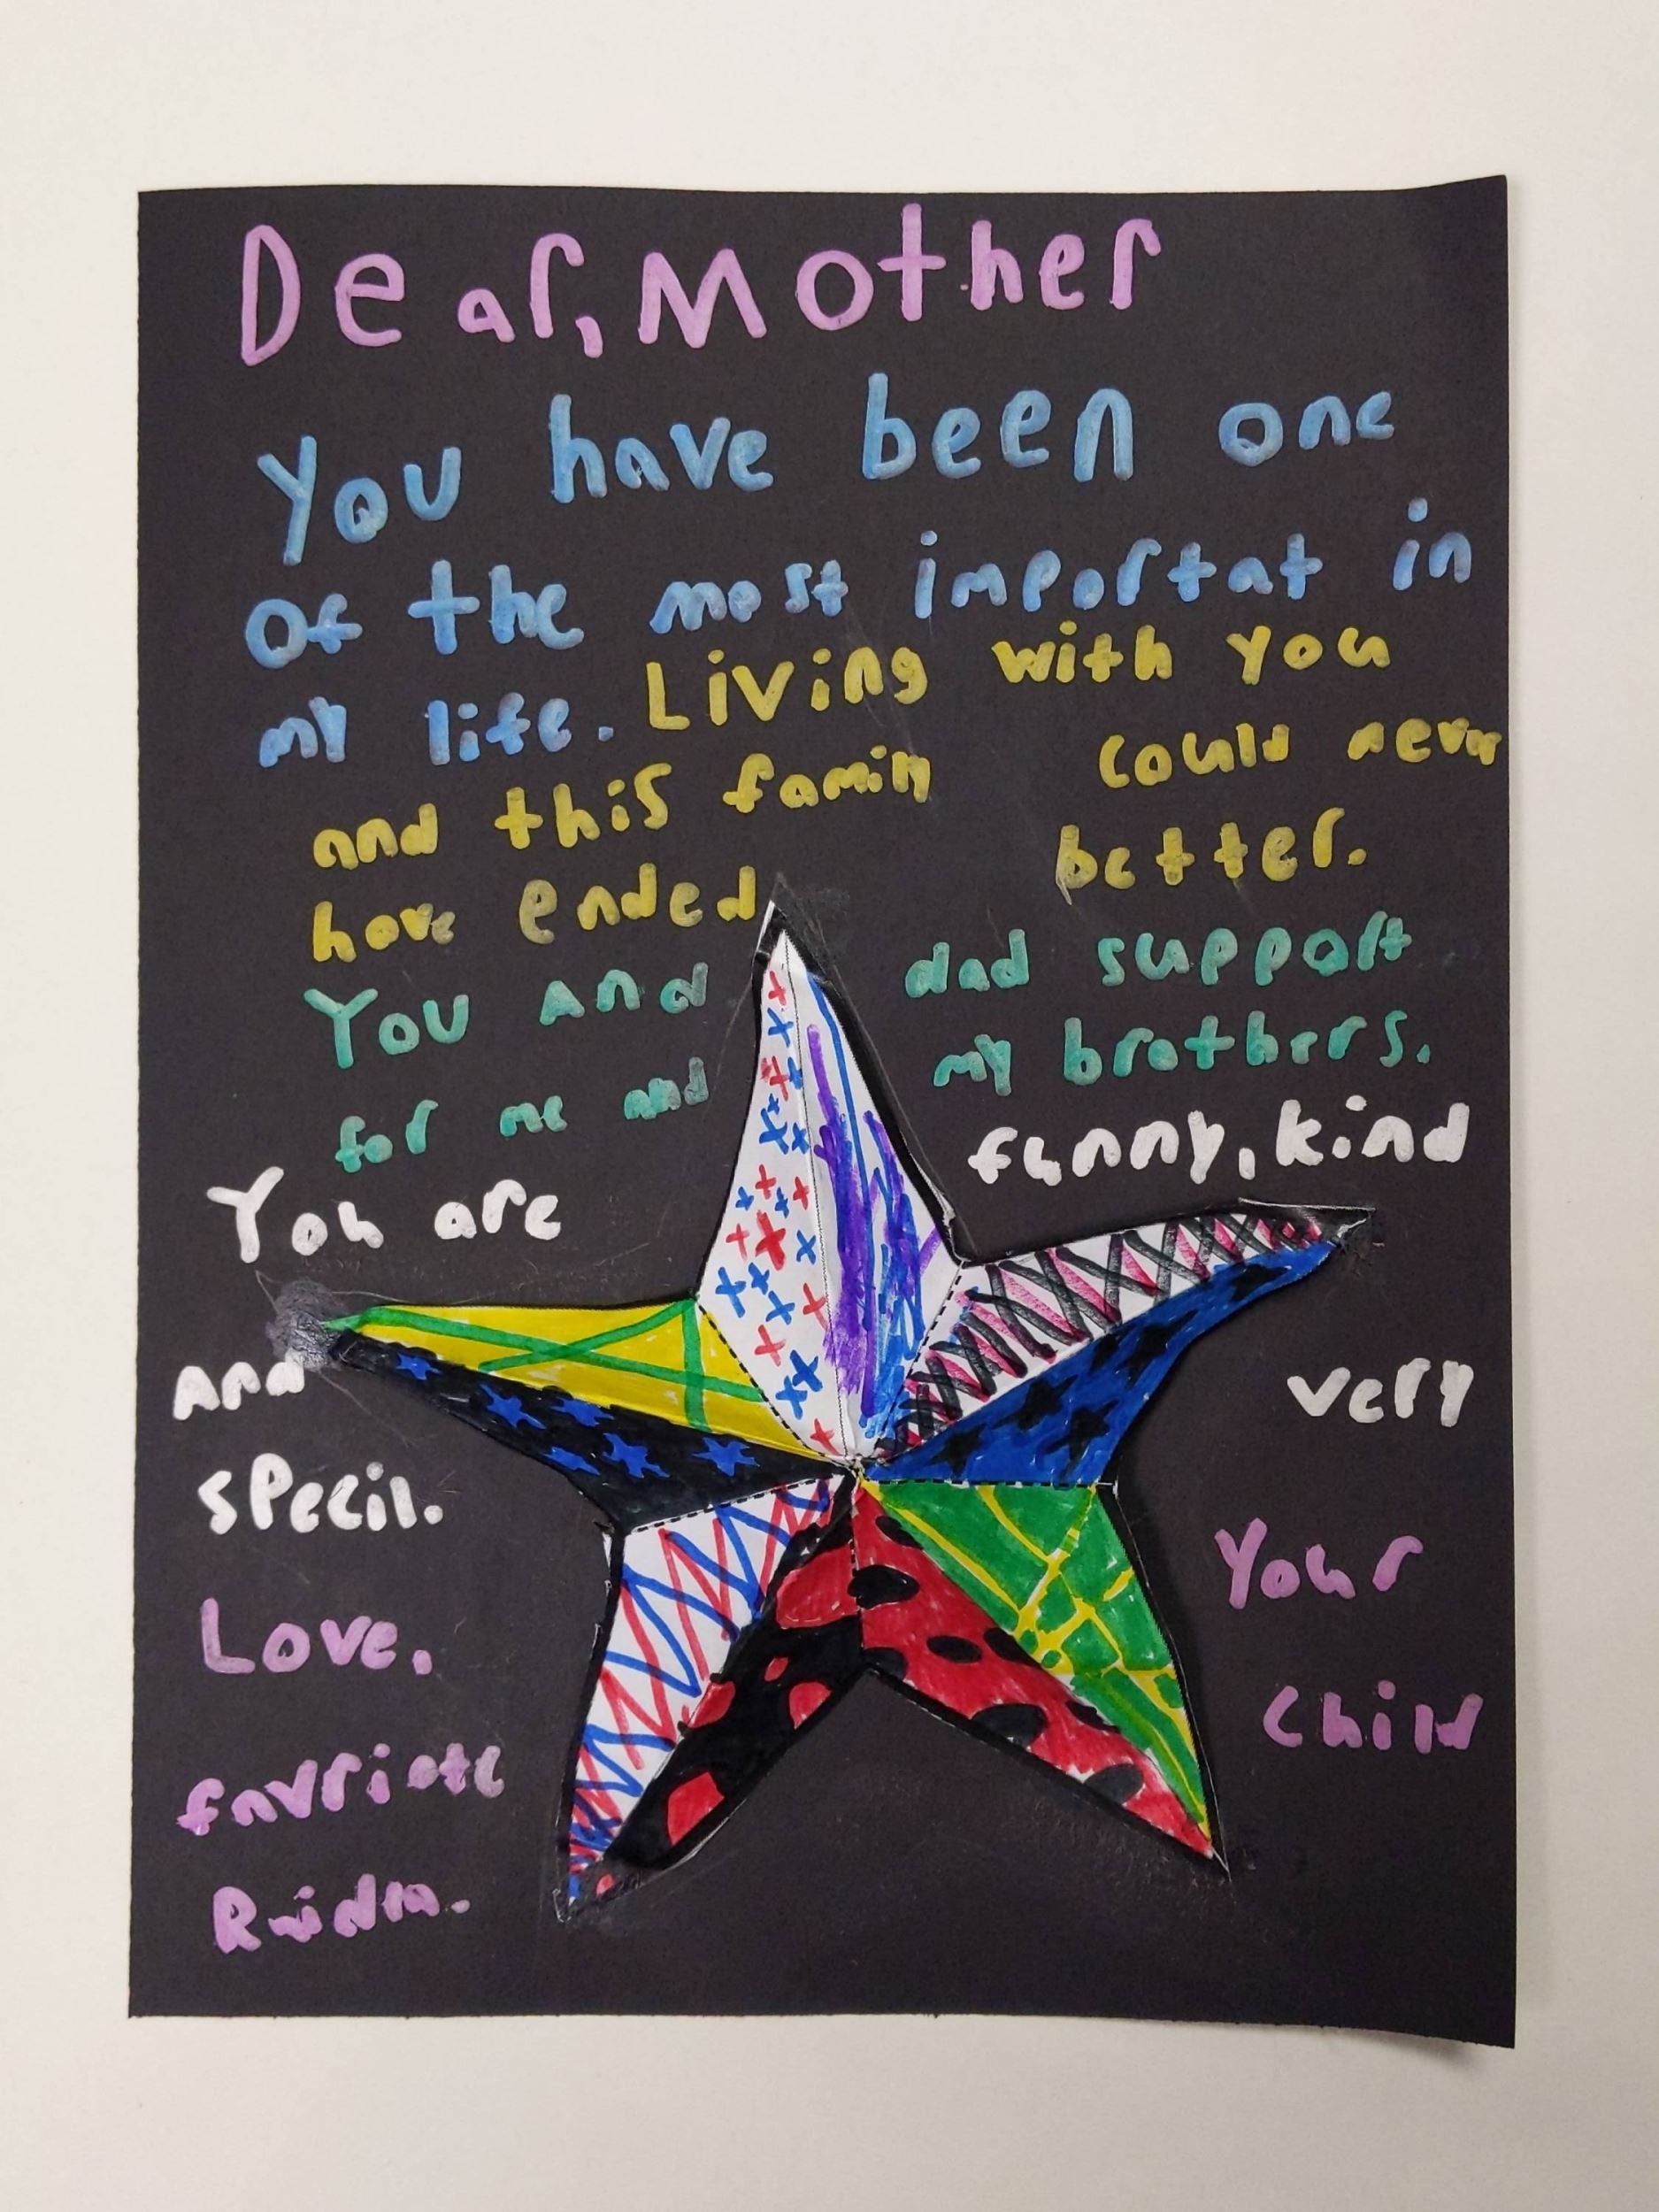 Dear, Mother
You have been one
of the most importat in
my life. Living with you
and this famiy could never
have ended better.
You and dad support
for me and my brothers.
You are funny, kind
and very
specil.
Love, Your
favriote Child